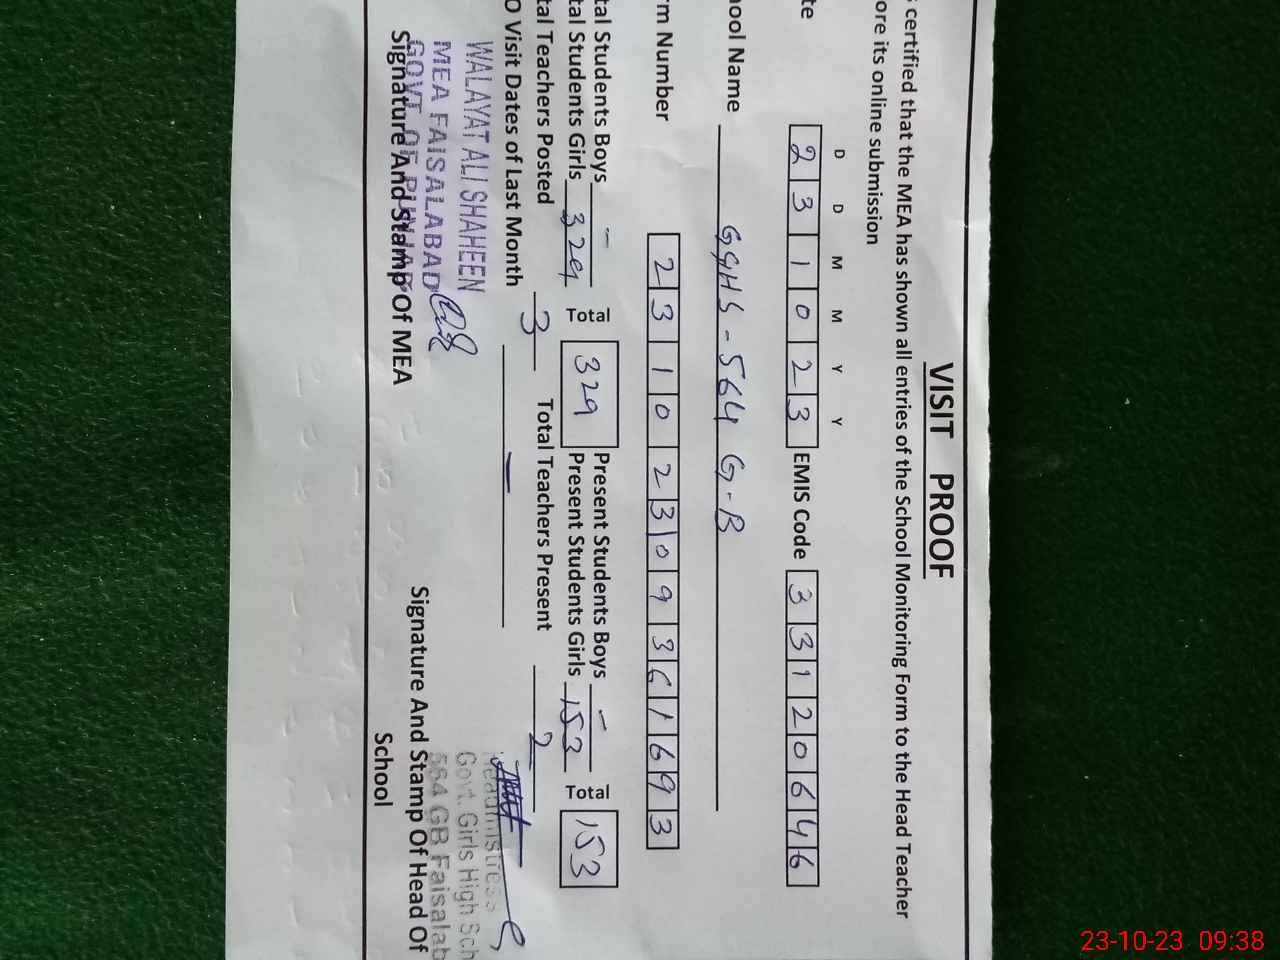 VISIT PROOF
certified that the MEA has shown all entries of the School Monitoring Form to the Head Teacher
ore its online submission
D D M M Y Y
te 2 3 1 0 2 3 EMIS Code 3 3 1 2 0 6 4 6
hool Name GGHS - 564 G-B
rm Number 2 3 1 0 2 3 0 9 3 6 1 6 9 3
tal Students Boys - Present Students Boys -
tal Students Girls 329 Total 329 Present Students Girls 153 Total 153
tal Teachers Posted 3 Total Teachers Present 2
O Visit Dates of Last Month -
WALAYAT ALI SHAHEEN
MEA FAISALABAD
GOVT OF PUNJAB
Signature And Stamp Of MEA
Headmistress
Govt. Girls High Sch
564 GB Faisalab
Signature And Stamp Of Head Of
School
23-10-23 09:38